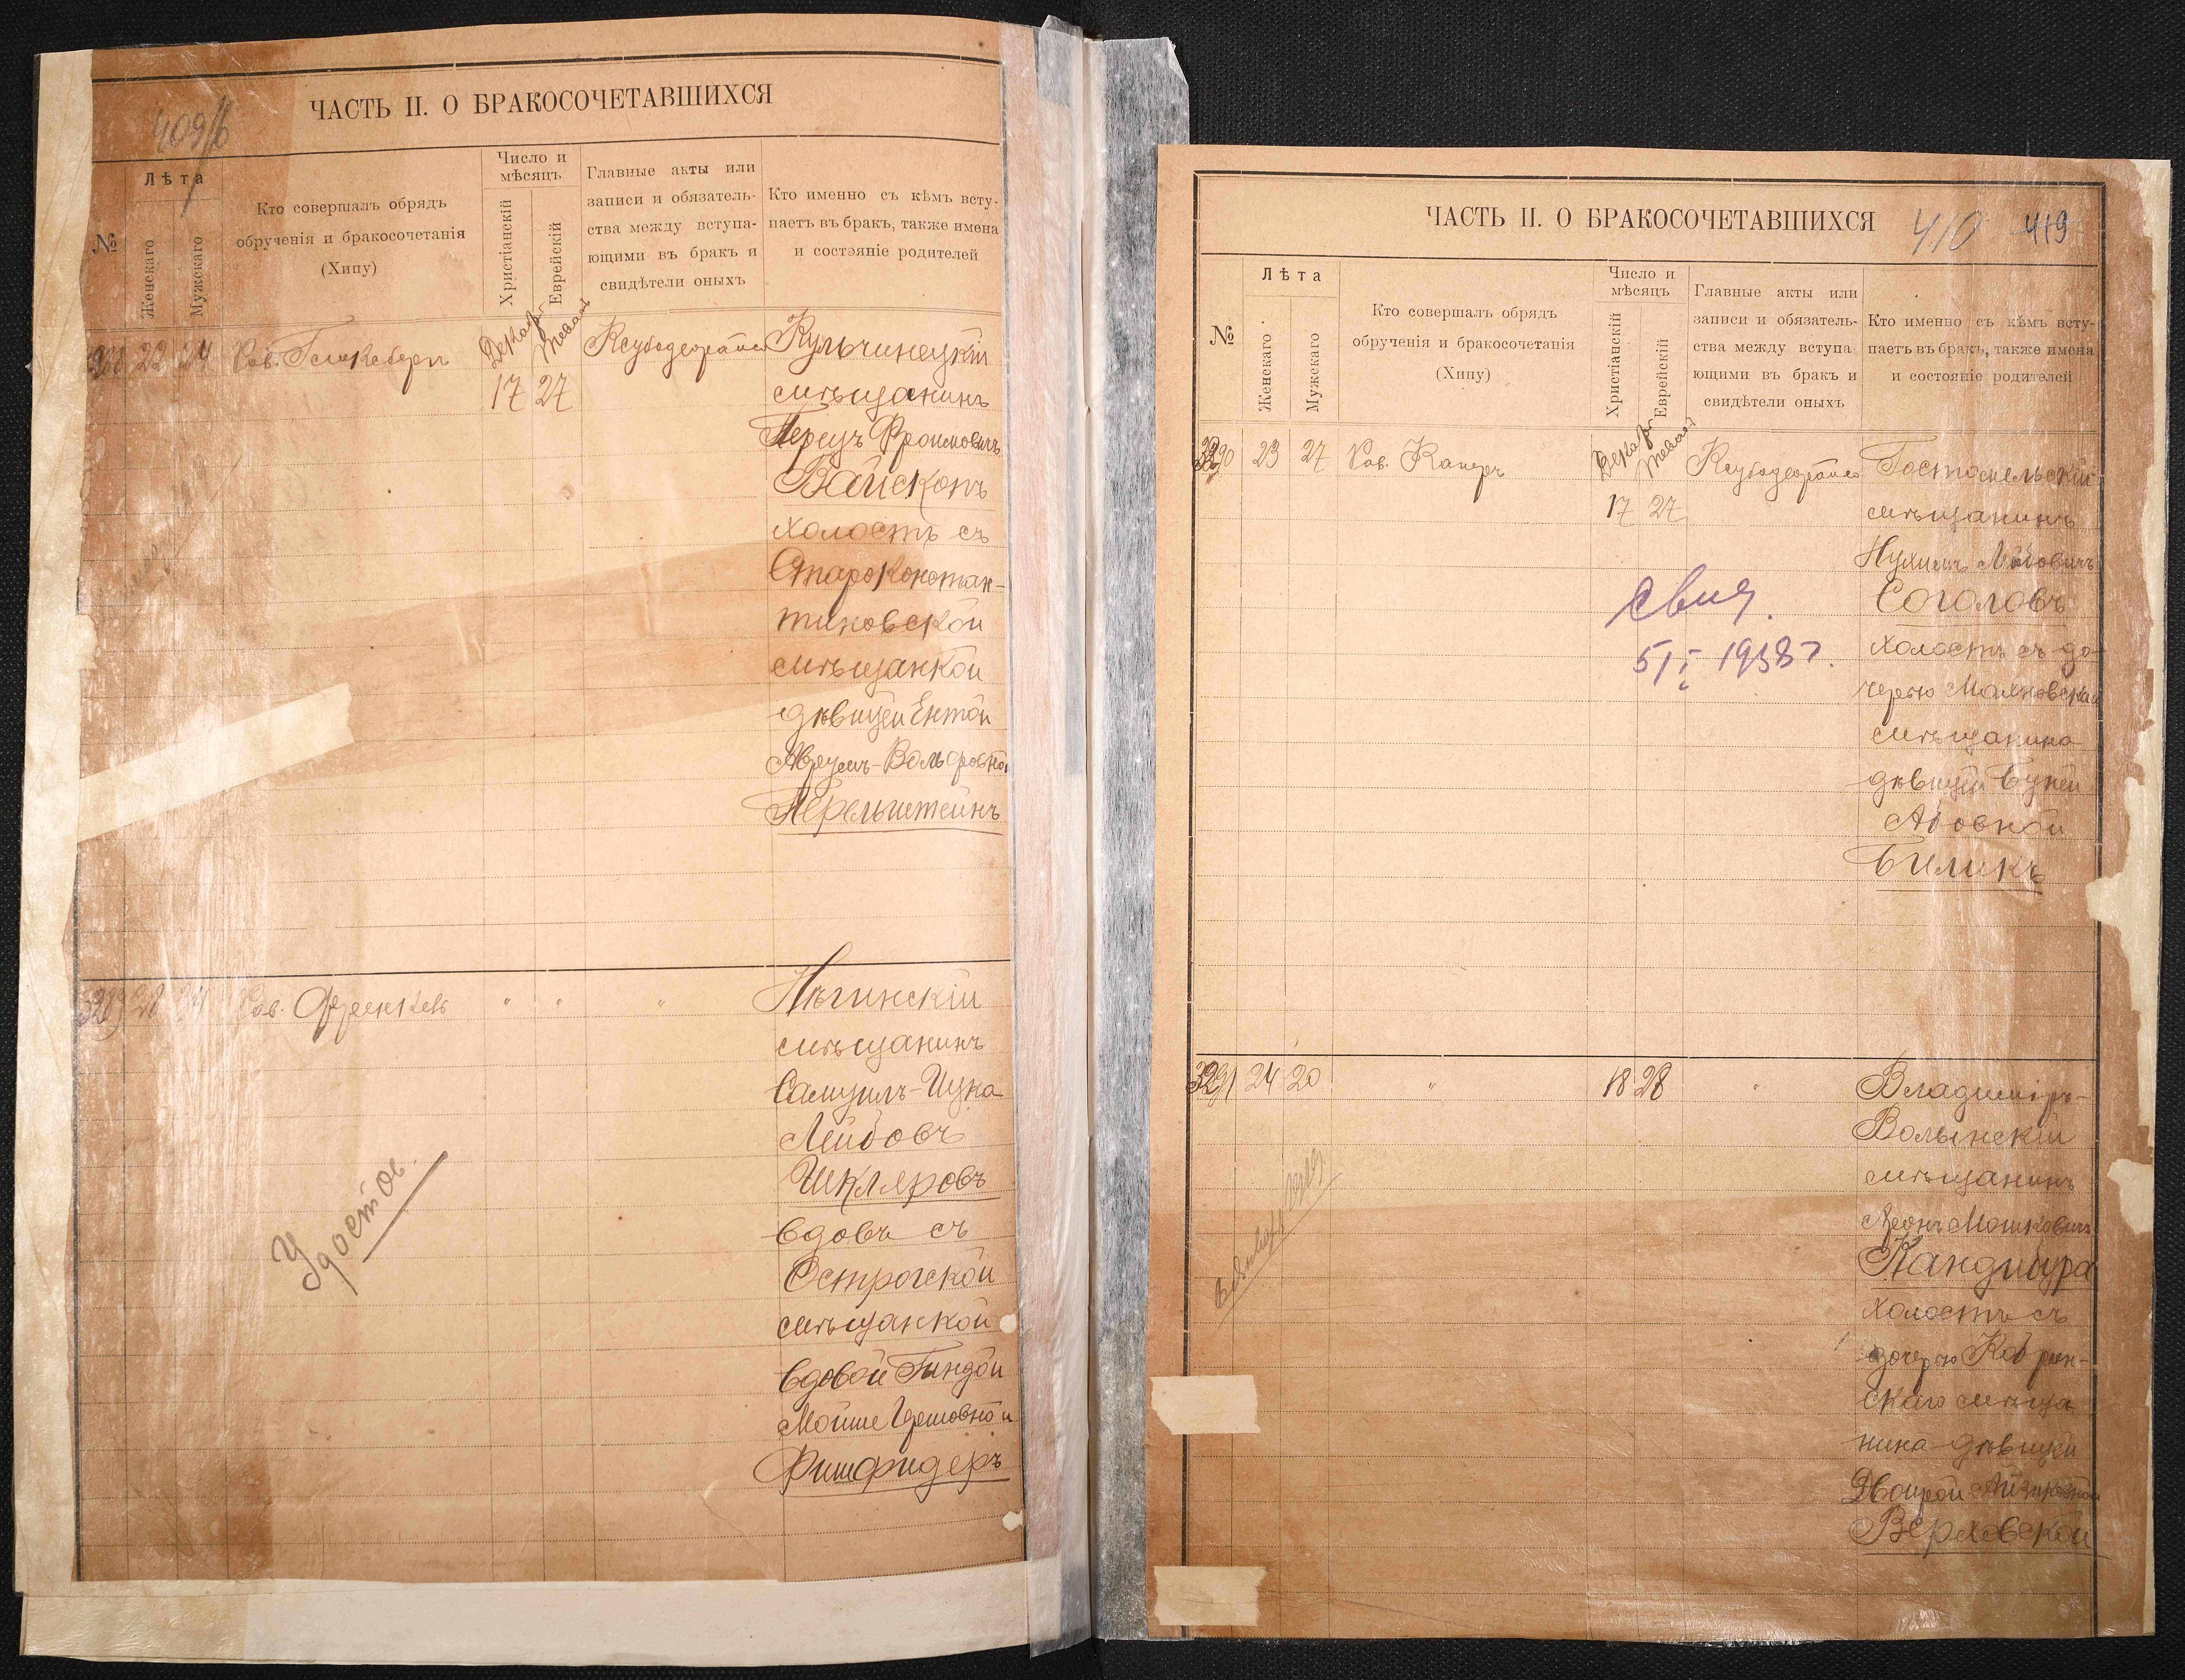 ЧАСТЬ II. О БРАКОСОЧЕТАВШИХСЯ
№
Лѣта
Женскаго
Мужскаго
Кто совершалъ обрядъ
обрученія и бракосочетанія
(Хипу)
Число и
мѣсяцъ
Христіанскій
Еврейскій
Главные акты или
записи и обязатель-
ства между вступа-
ющими въ бракъ и
свидѣтели оныхъ
Кто именно съ кѣмъ всту-
паетъ въ бракъ, также имена
и состояніе родителей
22 24
Рав.
17 27
Кульчинецкій
мѣщанинъ
Перецъ Фроимовичъ
Вайскопъ
холостъ съ
Староконстан-
тиновской
мѣщанкой
дѣвицей Ентой
Аврумъ-Вольфовной
Перельштейнъ
Рав. Френкель " " "
Нѣжинскій
мѣщанинъ
Самуилъ-Ицка
Лейбовъ
Шкляровъ
вдовъ съ
Острогской
мѣщанкой
вдовой Гиндой
Мойше
Фишфидеръ
Удостов.
ЧАСТЬ II. О БРАКОСОЧЕТАВШИХСЯ
410 419
№
Лѣта
Женскаго
Мужскаго
Кто совершалъ обрядъ
обрученія и бракосочетанія
(Хипу)
Число и
мѣсяцъ
Христіанскій
Еврейскій
Главные акты или
записи и обязатель-
ства между вступа-
ющими въ бракъ и
свидѣтели оныхъ
Кто именно съ кѣмъ всту-
паетъ въ бракъ, также имена
и состояніе родителей
23 27 Рав. Канцръ
17 27
Гостомельскій
мѣщанинъ
Нухимъ Лейбовичъ
Соголовъ
холостъ съ до-
черью Махновскаго
мѣщанина
дѣвицей Бузей
Абовной
Биликъ
5/I 1938 г.
3291 24 20 " 18 28 "
Владиміръ-
Волынскій
мѣщанинъ
Леонъ Мошковичъ
Кандибура
холостъ съ
дочерью Кобрин-
скаго мѣща
нина дѣвицей
Двойрой Айзиковной
Верховской